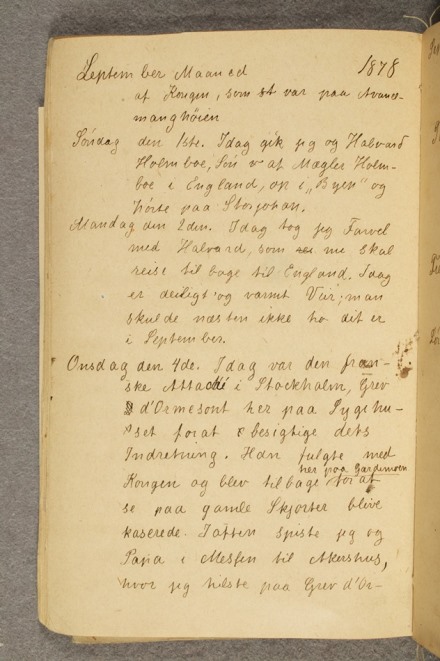 September Maaned 1878
af Kongen, som st var paa Avance-
manghöien
Söndag den 1ste. Idag gik jeg og Halvard
Holmboe, Sön v af Mægler Holm-
boe i England, op i „Byen" og
hörte paa Storjohan.
Mandag den 2den. Idag tog jeg Farvel
med Halvard, som nu skal
reise til bage til England. Idag
er deiligt og varmt Veir; man
skulde næsten ikke tro dit er
i September.
Onsdag den 4de. Idag var den fran-
ske Attaché i Stockholm, Grev
d'Ormesont her paa Sygehu-
set forat besigtige dets
Indretning. Han fulgte med
her paa Gardemoen
Kongen og blev tilbage forat
se paa gamle Skjorter blive
kaserede. Iaften spiste jeg og
Papa i Messen til Akershus,
hvor jeg hilste paa Grev d'Or-